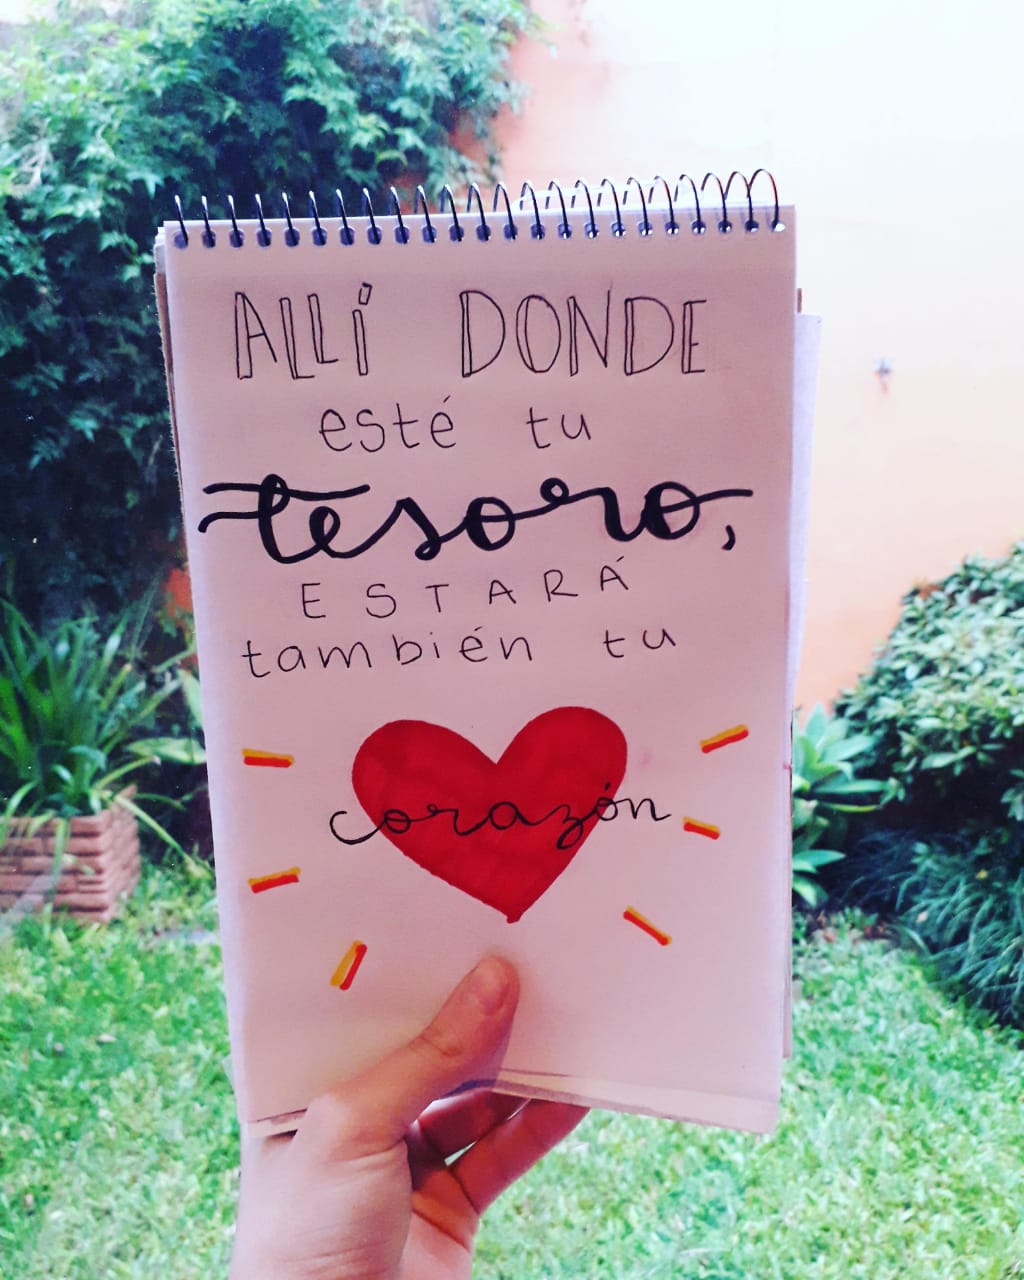 ALLÍ DONDE
esté tu
tesoro,
ESTARÁ
también tu
corazón